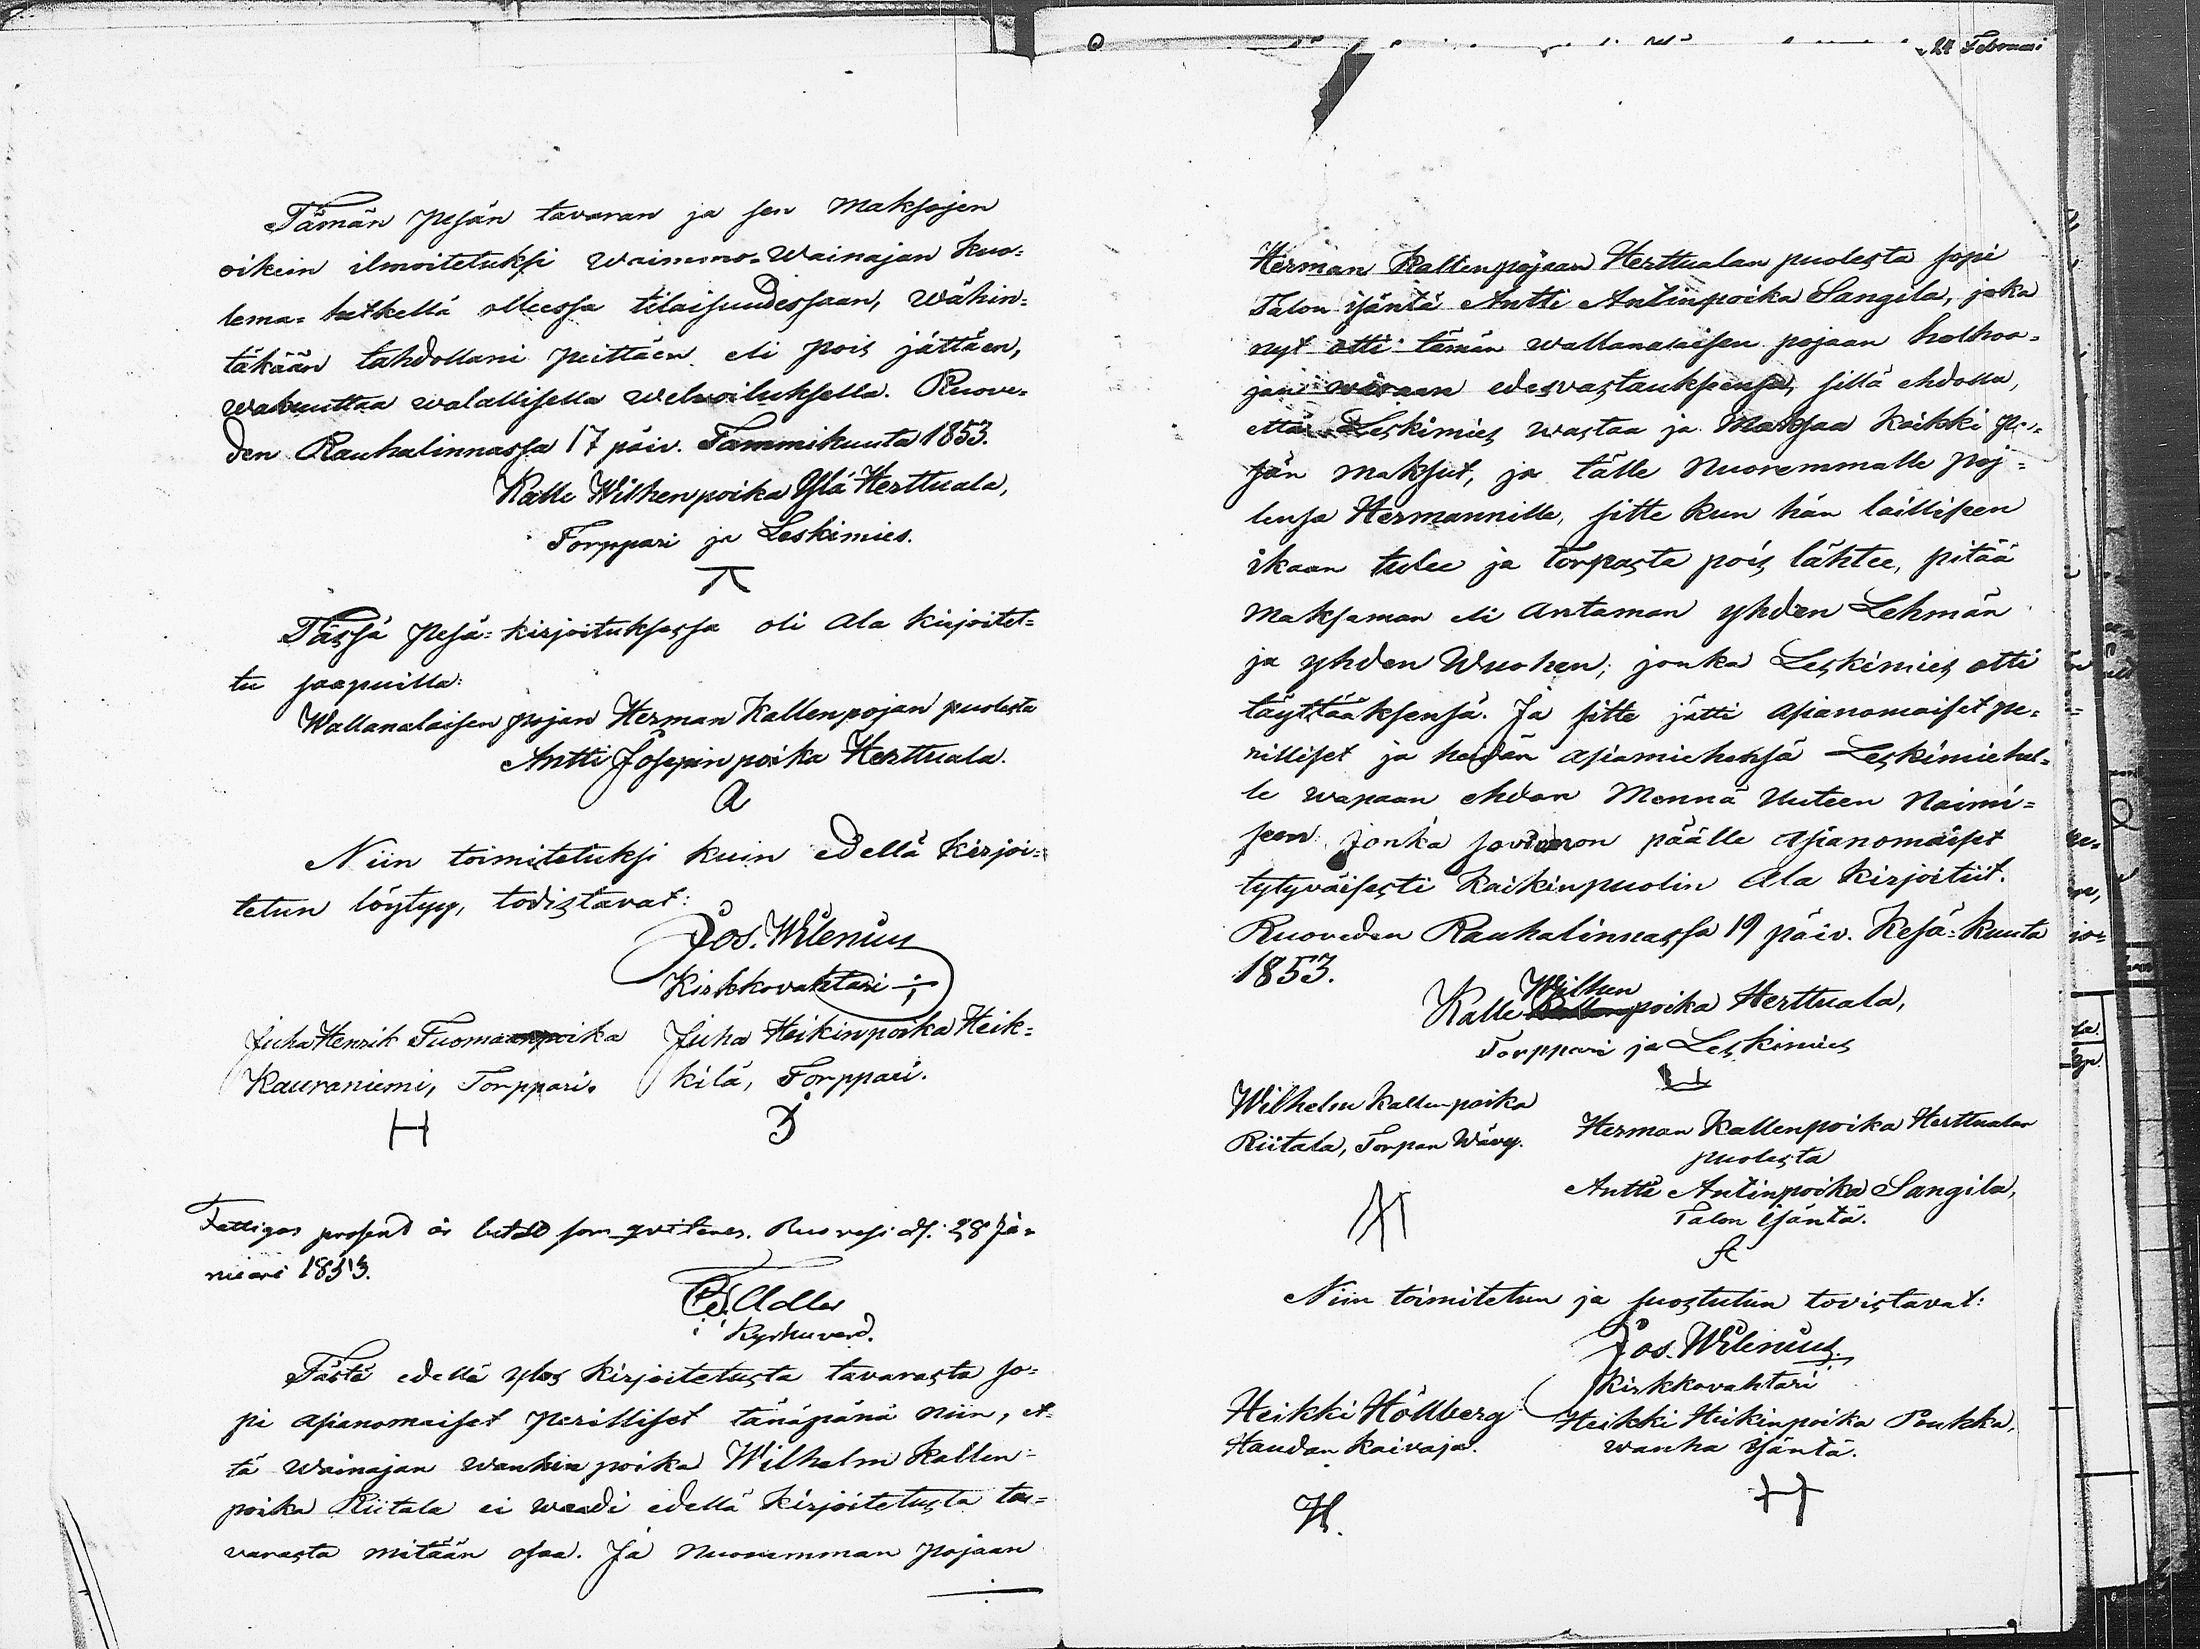 Tämän pesän tavaran ja sen maksojen
oikein ilmoitetuksi waimmo-Wainajan kuo=
lema=hetkellä olleessa tilaisuudessaan, wähin=
täkään tahdollani peittäen eli pois jättäen,
wakuuttaa walallisella welwoituksella. Ruove=
den Rauhalinnassa 17 päiv. Tammikuuta 1853.
Kalle Wilhenpoika Ylä Herttuala,
Torppari ja Leskimies.
Tässä pesä=kirjoituksessa oli ala kirjoitet=
tu saapuilla:
Wallanalaisen pojan Herman Kallenpojan puolesta
Antti Josepinpoika Herttuala.
A
Niin toimitetuksi kuin edellä kirjoi=
tetun löytyy, todistavat:
Jos. Wilenius
Kirkkovahtari
Juha Henrik Tuomaanpoika
Kauraniemi, Torppari.
H
Juha Heikinpoika Heik=
kilä, Torppari.
Fattigas prosent är betald som qvitteras. Ruovesi d. 28 Ja=
nuari 1853.
Adler
Kyrkuverd.
Tästä edellä ylös kirjoitetusta tavarasta so=
pi asianomaiset perilliset tänäpänä niin, et=
tä wainajan wanhin poika Wilhelm Kallen=
poika Riitala ei waadi edellä kirjoitetusta ta=
varasta mitään osaa. Ja nuoremman pojaan
24 Februari
Herman Kallenpojaan Herttualan puolesta sopi
Talon isäntä Antti Antinpoika Sangila, joka
nyt otti tämän wallanalaisen pojaan holhoo=
jan waraan edesvastauksensa, sillä ehdolla,
että Leskimies wastaa ja maksaa kaikki pe=
sän maksut, ja tälle nuoremmalle poj=
lensa Hermannille, sitte kun hän laillisen
ikaan tulee ja torpasta pois lähtee, pitää
maksaman eli antaman yhden Lehmän
ja yhden Wuohen, jonka Leskimies otti
täyttääksensä. Ja sitte jätti asianomaiset pe=
rilliset ja heidän asiamiehensä Leskimiehel=
le wapaan ehdon mennä uuteen naimi=
seen jonka sovinnon päälle asianomaiset
tytyväisesti kaikinpuolin ala kirjoitiit.
Ruoveden Rauhalinnassa 19 päiv. Kesä=kuuta
1853.
Wilhen
Kalle poika Herttuala,
Torppari ja Leskimies
Wilhelm Kallenpoika
Riitala, Torpan Wävy.
Herman Kallenpoika Herttualan
puolesta
Antti Antinpoika Sangila,
Talon isäntä.
A
Niin toimitetun ja suostutun tovistavat:
Jos. Wilenius
Kirkkovahtari
Heikki Höllberg
Haudan kaivaja.
H.
Heikki Heikinpoika Poukka,
wanha isäntä.
H